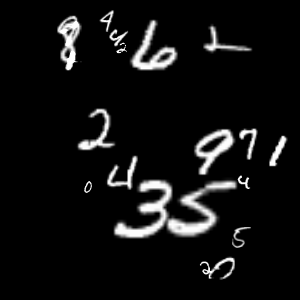 8 4 6
2
9 7 1
0 4 3 5 4
5
2